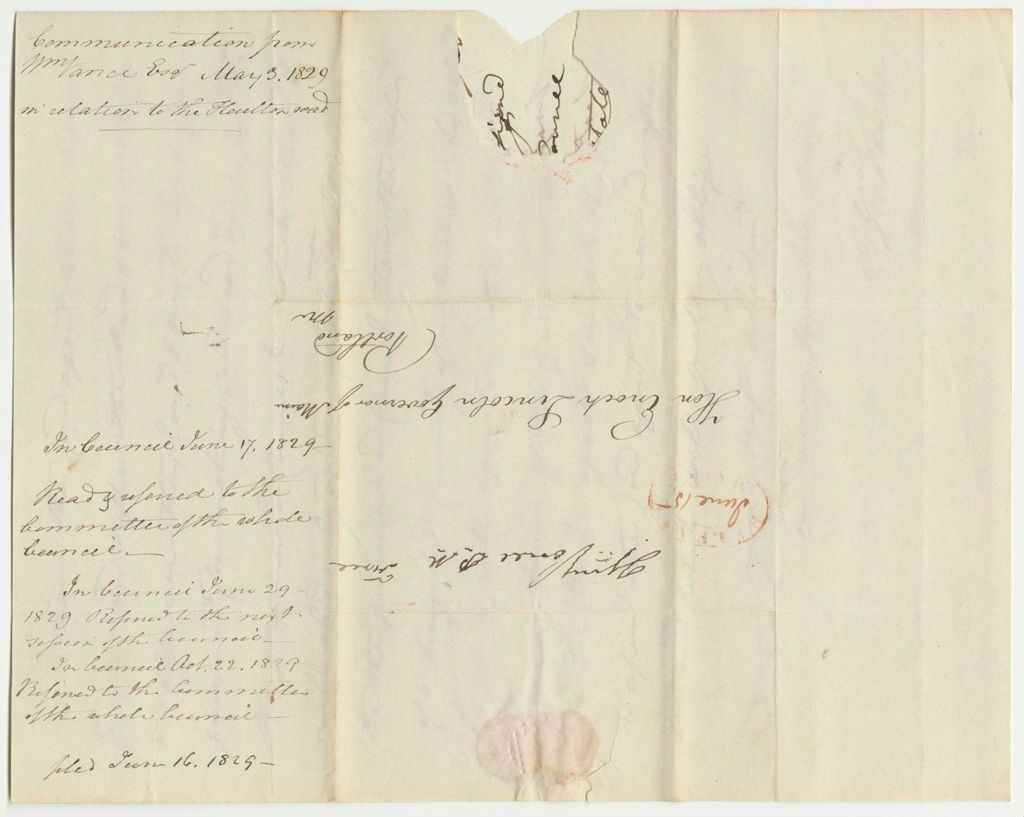 Communication from
Wm Vance Esqr May 3. 1829
in relation to the Houlton road
In Council June 17. 1829
Read & referred to the
Committee of the whole
Council
In Council June 29
1829 Referred to the next
session of the Council
In Council Oct. 22. 1829
Referred to the Committee
of the whole Council
filed June 16. 1829
Hon Enoch Lincoln Governor of Maine
Portland
Me
June 15
Free